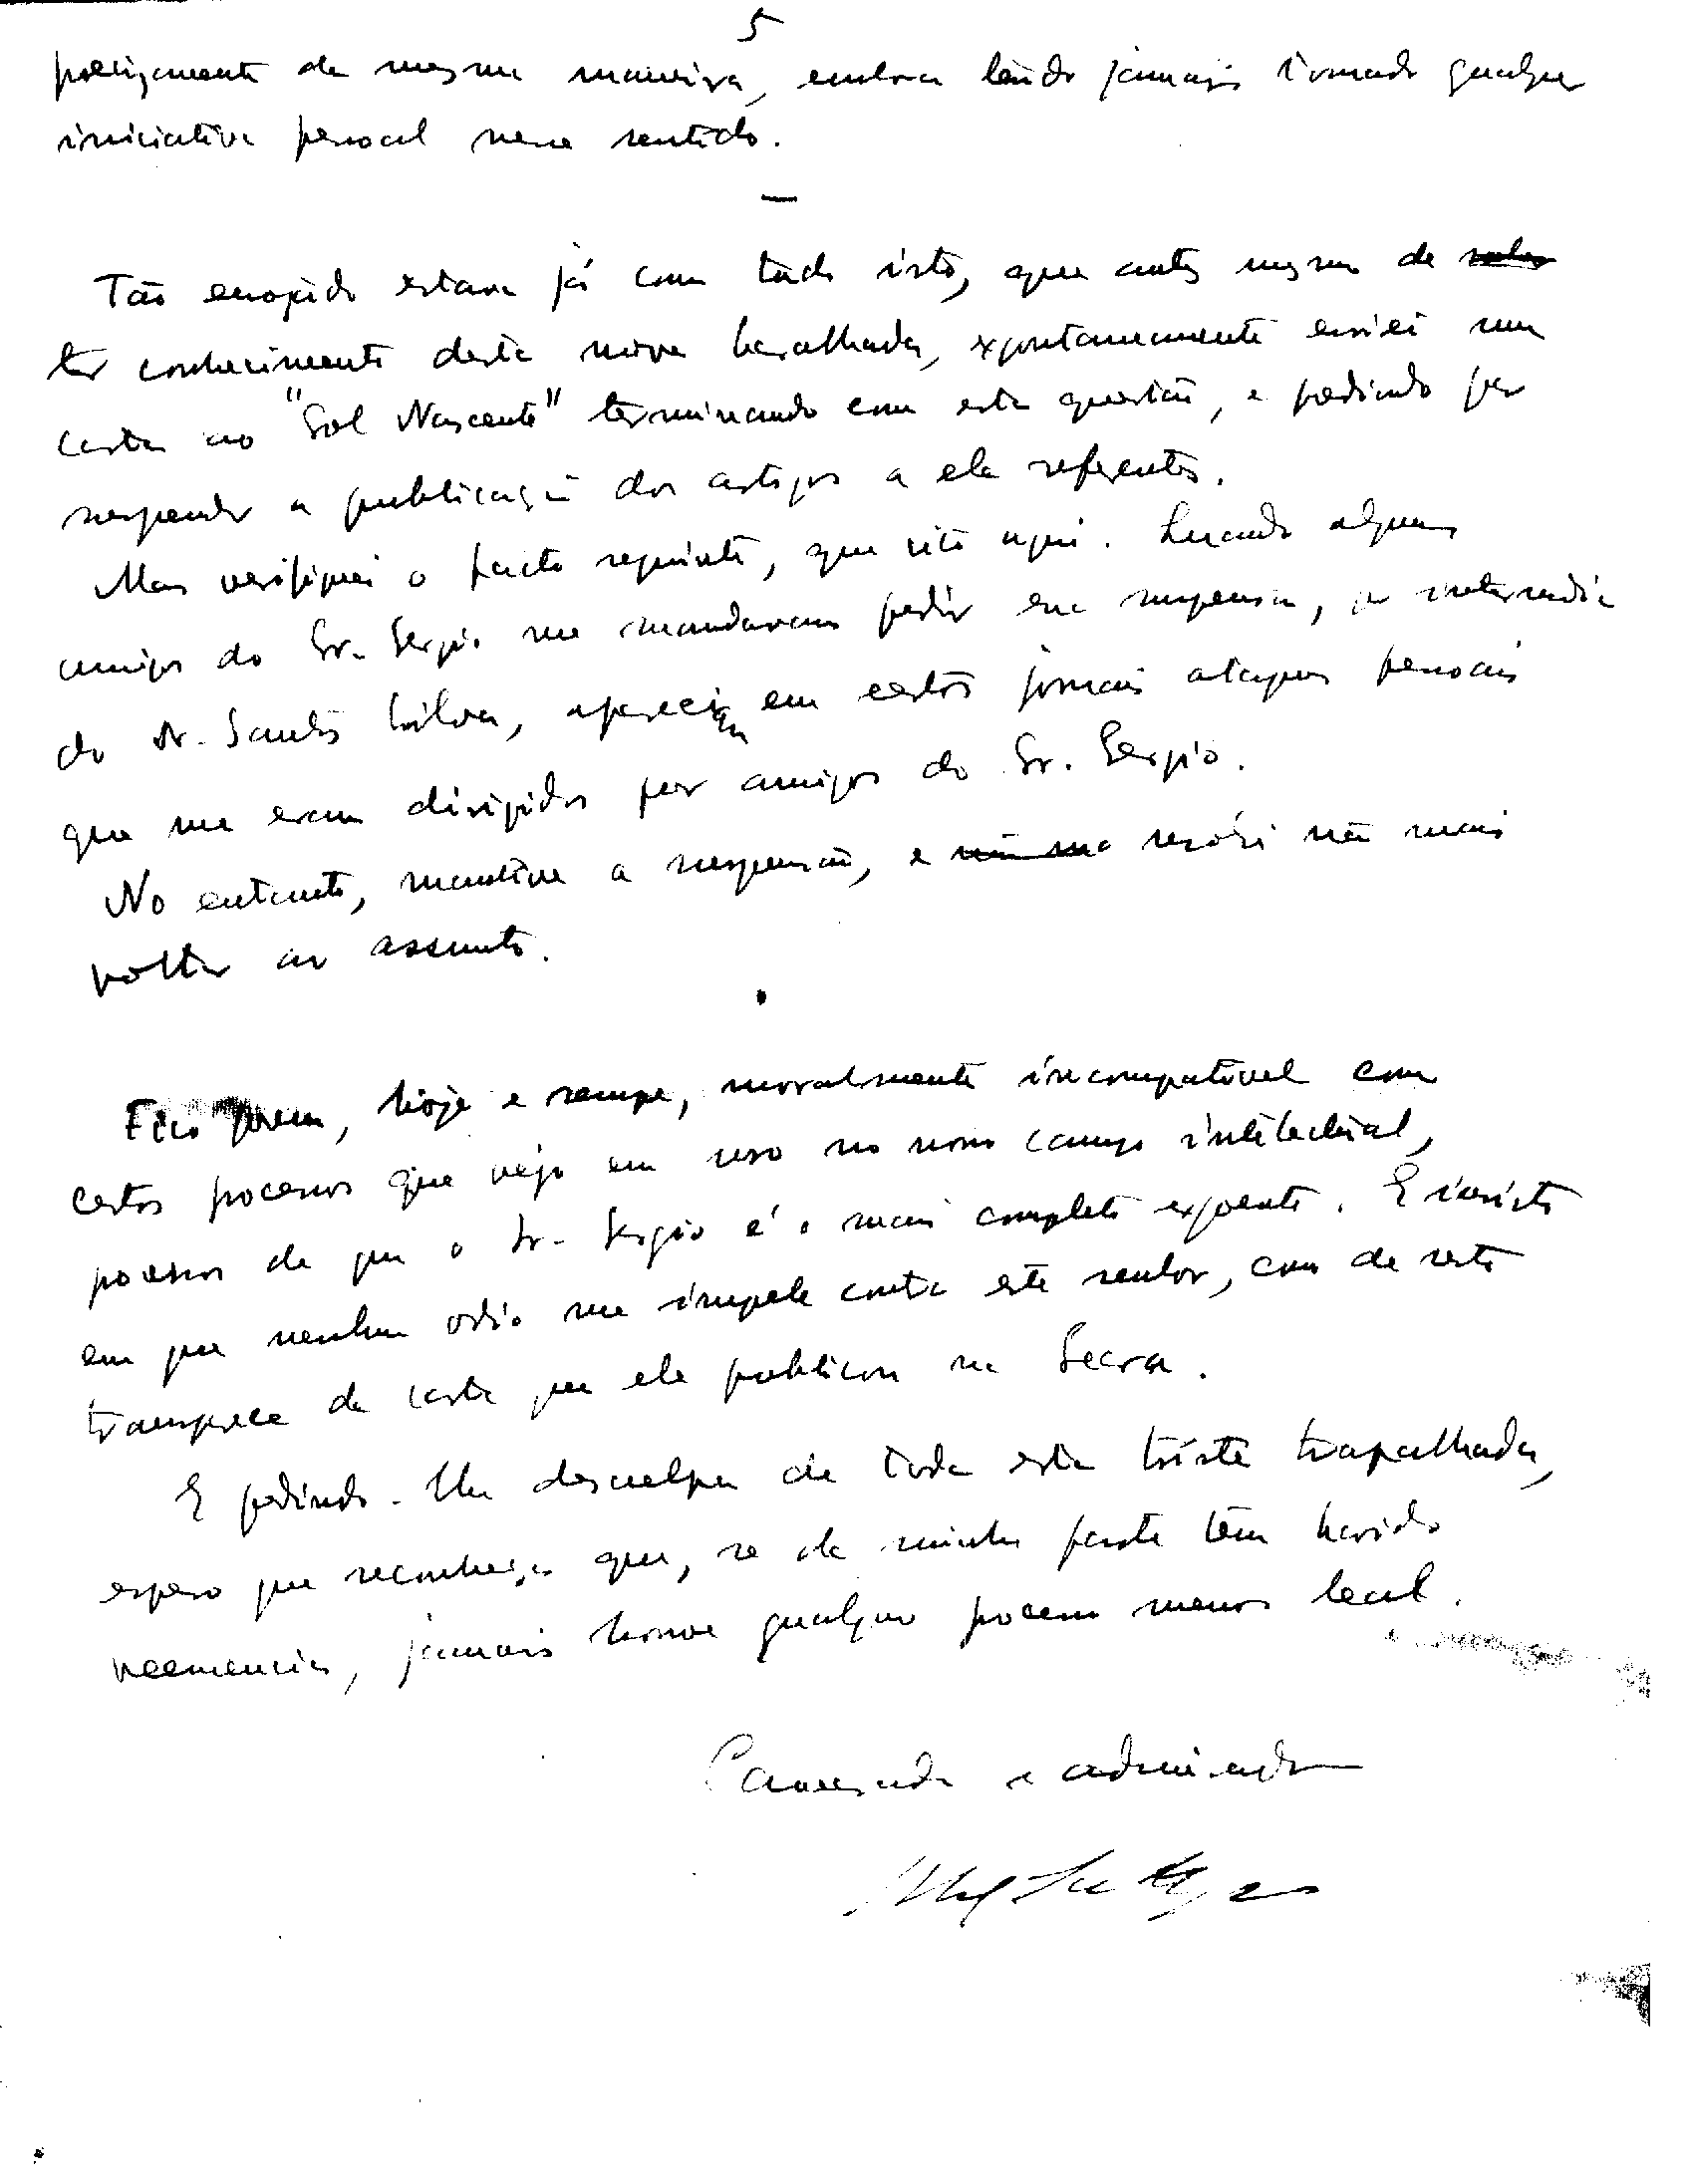 5
precisamente da mesma maneira, embora tendo jamais tomado qualquer
iniciativa pessoal nesse sentido.
—
Tão enojado estava já com tudo isto, que antes mesmo de
ter conhecimento desta nova baralhada, expontaneamente enviei uma
carta ao "Sol Nascente" terminando com esta questão, e pedindo para
suspender a publicação dos artigos a ela referentes.
Mas verifiquei o facto seguinte, que cito aqui. Quando alguns
amigos do Sr. Sergio me mandavam pedir essa suspensão, por intermedio
do Dr. Santos Silva, apareciam em certos jornais ataques pessoais
que me eram dirigidos por amigos do Sr. Sergio.
No entanto, mantive a suspensão, e resolvi não mais
voltar ao assunto.
Fico porem, hoje e sempre, moralmente incompativel com
certos processos que vejo em uso no nosso campo intelectual,
processos de que o Sr. Sergio é o mais completo expoente. E insisto
em que nenhum odio me impele contra este senhor, como de resto
transparece da carta que ele publicou na Seara.
E pedindo-lhe desculpa de toda esta triste trapalhada,
espero que reconheça que, se da minha parte tem havido
veemencia, jamais houve qualquer processo menos leal.
Camarada e admirador